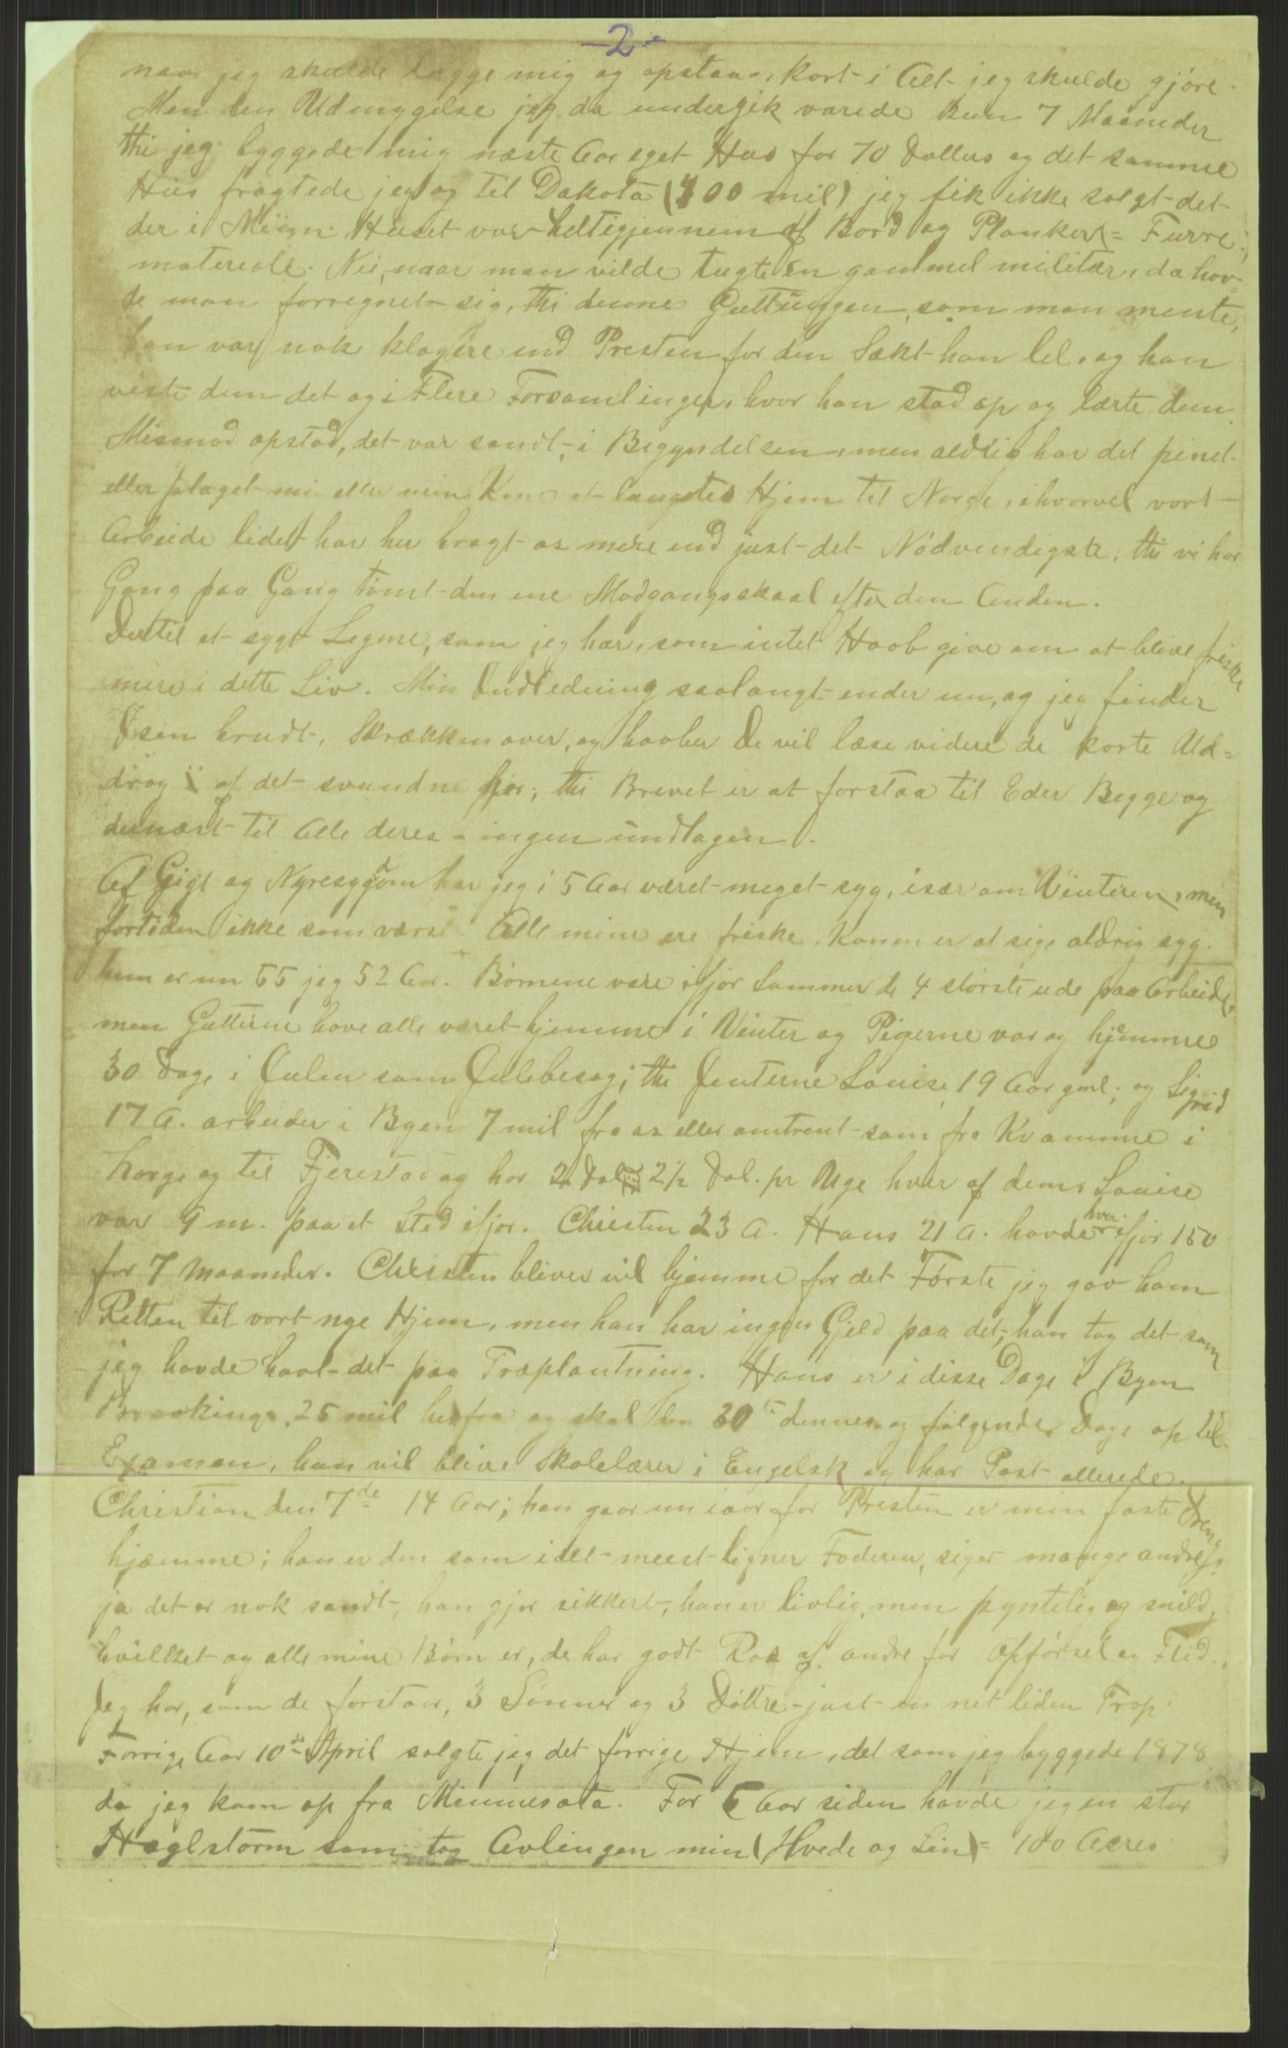 -2-
naar jeg skulde lægge mig og opstaa, kort i Alt jeg skulde gjøre.
Men den Udmygelse jeg da undergik varede kun 7 Maaneder
thi jeg byggede mig næste Aar eget Hus for 70 Dollars og det samme
Hus fragtede jeg og til Dakota (300 mil) jeg fik ikke solgt det
der i Minn. Huset var heltigjennem af Bord og Planker = Furre
materiale. Nei, naar man vilde tugte en gammel militær, da hav-
de man forregnet sig, thi denne Guttungen, som man mente,
han var nok klogere end Presten for den Sakt han lel, og han
viste dem det og i Flere Forsamlinger, hvor han stod op og lærte dem.
Mismod opstod, det var sandt, i Begyndelsen, men aldrig har det pinet
eller plaget mig eller min Kone at længtes Hjem til Norge, ihvorvel vort
Arbeide lidet har her bragt os mere end just det Nødvendigste, thi vi har
Gang paa Gang tømt den ene Modgangsskaal efter den Anden.
Dertil et sygt Legme, som jeg har, som intet Haab give om at blive friske
mere i dette Liv. Min Indledning saalangt ender nu, og jeg finder
Isen brudt, Skrækken over, og haaber De vil læse videre de korte Ud-
drag af det svundne her, thi Brevet er at forstaa til Eder Begge og
dernæst til Alle deres - ingen undtagen.
Af Gigt og Nyresygdom har jeg i 5 Aar været meget syg, især om Vinteren, men
fortiden ikke som værst. Alle mine ere friske. Konen er at sige aldrig syg.
hun er nu 55 jeg 52 Aar. Børnene vare ifjor Sommer de 4 største ude paa Arbeide,
men Gutterne have alle været hjemme i Vinter og Pigerne var og hjemme
30 Dage i Julen som Julebesøg; thi Jenterne Louise 19 Aar gml. og Sigrid
17 A. arbeider i Byen 7 mil fra os eller omtrent som fra Kvamme i
Norge og til Fjerestad og har 2 Dol. til 2 1/2 Dol. pr Uge hver af dem. Louise
var 9 m. paa et Sted ifjor. Christen 23 A. Hans 21 A. havde hver ifjor 150
for 7 Maaneder. Christen bliver vil hjemme for det Første jeg gav ham
Retten til vort nye Hjem, men han har ingen Gjeld paa det, han tog det som
jeg havde havt det paa Træplantning. Hans er i disse Dage i Byen
Brookings 25 mil herfra og skal den 30te dennes og følgende Dage op til
Examen, han vil blive Skolelærer i Engelsk og har Post allerede.
Christian den 7de 14 Aar; han gaar nu iaar for Presten er min faste Dreng
hjemme; han er den som idet meest ligner Faderen, siger mange andre,
ja det er nok sandt, han gjør sikkert, han er livlig, men pyntelig og snild,
hvilket og alle mine Børn er, de har godt Ros af andre for Opførsel og Flid.
Jeg har, som de forstaar, 3 Sønner og 3 Døttre - just en net liden Trop.
Forrige Aar 10de April solgte jeg det forrige Hjem, det som jeg byggede 1878
da jeg kom op fra Minnesota. For 5 Aar siden havde jeg en stor
Haglstorm som tog Avlingen min (Hvede og Lin) = 100 Acres